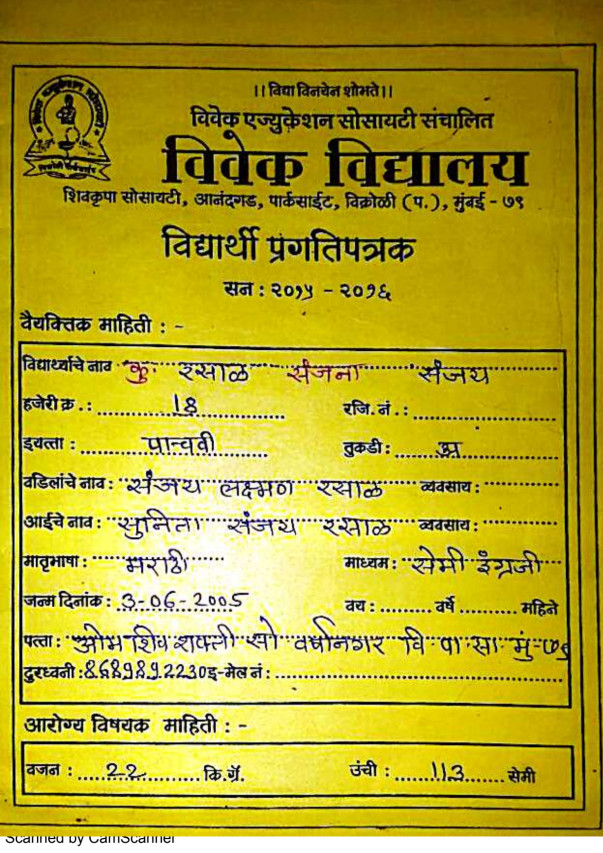 ।। विद्या विनयेन शोभते।।
विवेक एज्युकेशन सोसायटी संचालित
विवेक विद्यालय
शिवकृपा सोसायटी, आनंदगड, पार्कसाईट, विक्रोळी (प.), मुंबई - ७९
विद्यार्थी प्रगतिपत्रक
सन : २०१५ - २०१६
वैयक्तिक माहिती : -
विद्यार्थ्याचे नाव कु. रसाळ संजना संजय
हजेरी क्र. : 18 रजि. नं. :
इयत्ता : पाचवी तुकडी : अ
वडिलांचे नाव : संजय लक्ष्मण रसाळ व्यवसाय :
आईचे नाव : सुनिता संजय रसाळ व्यवसाय :
मातृभाषा : मराठी माध्यम : सेमी इंग्रजी
जन्म दिनांक : 3-06-2005 वय : वर्षे महिने
पत्ता : ओम शिव शक्ती सो वर्षानगर वि पा सा मुं-७९
दुरध्वनी : 8689892230 इ-मेल नं :
आरोग्य विषयक माहिती : -
वजन : 22 कि.ग्रॅ. उंची : 113 सेमी
Scanned by CamScanner